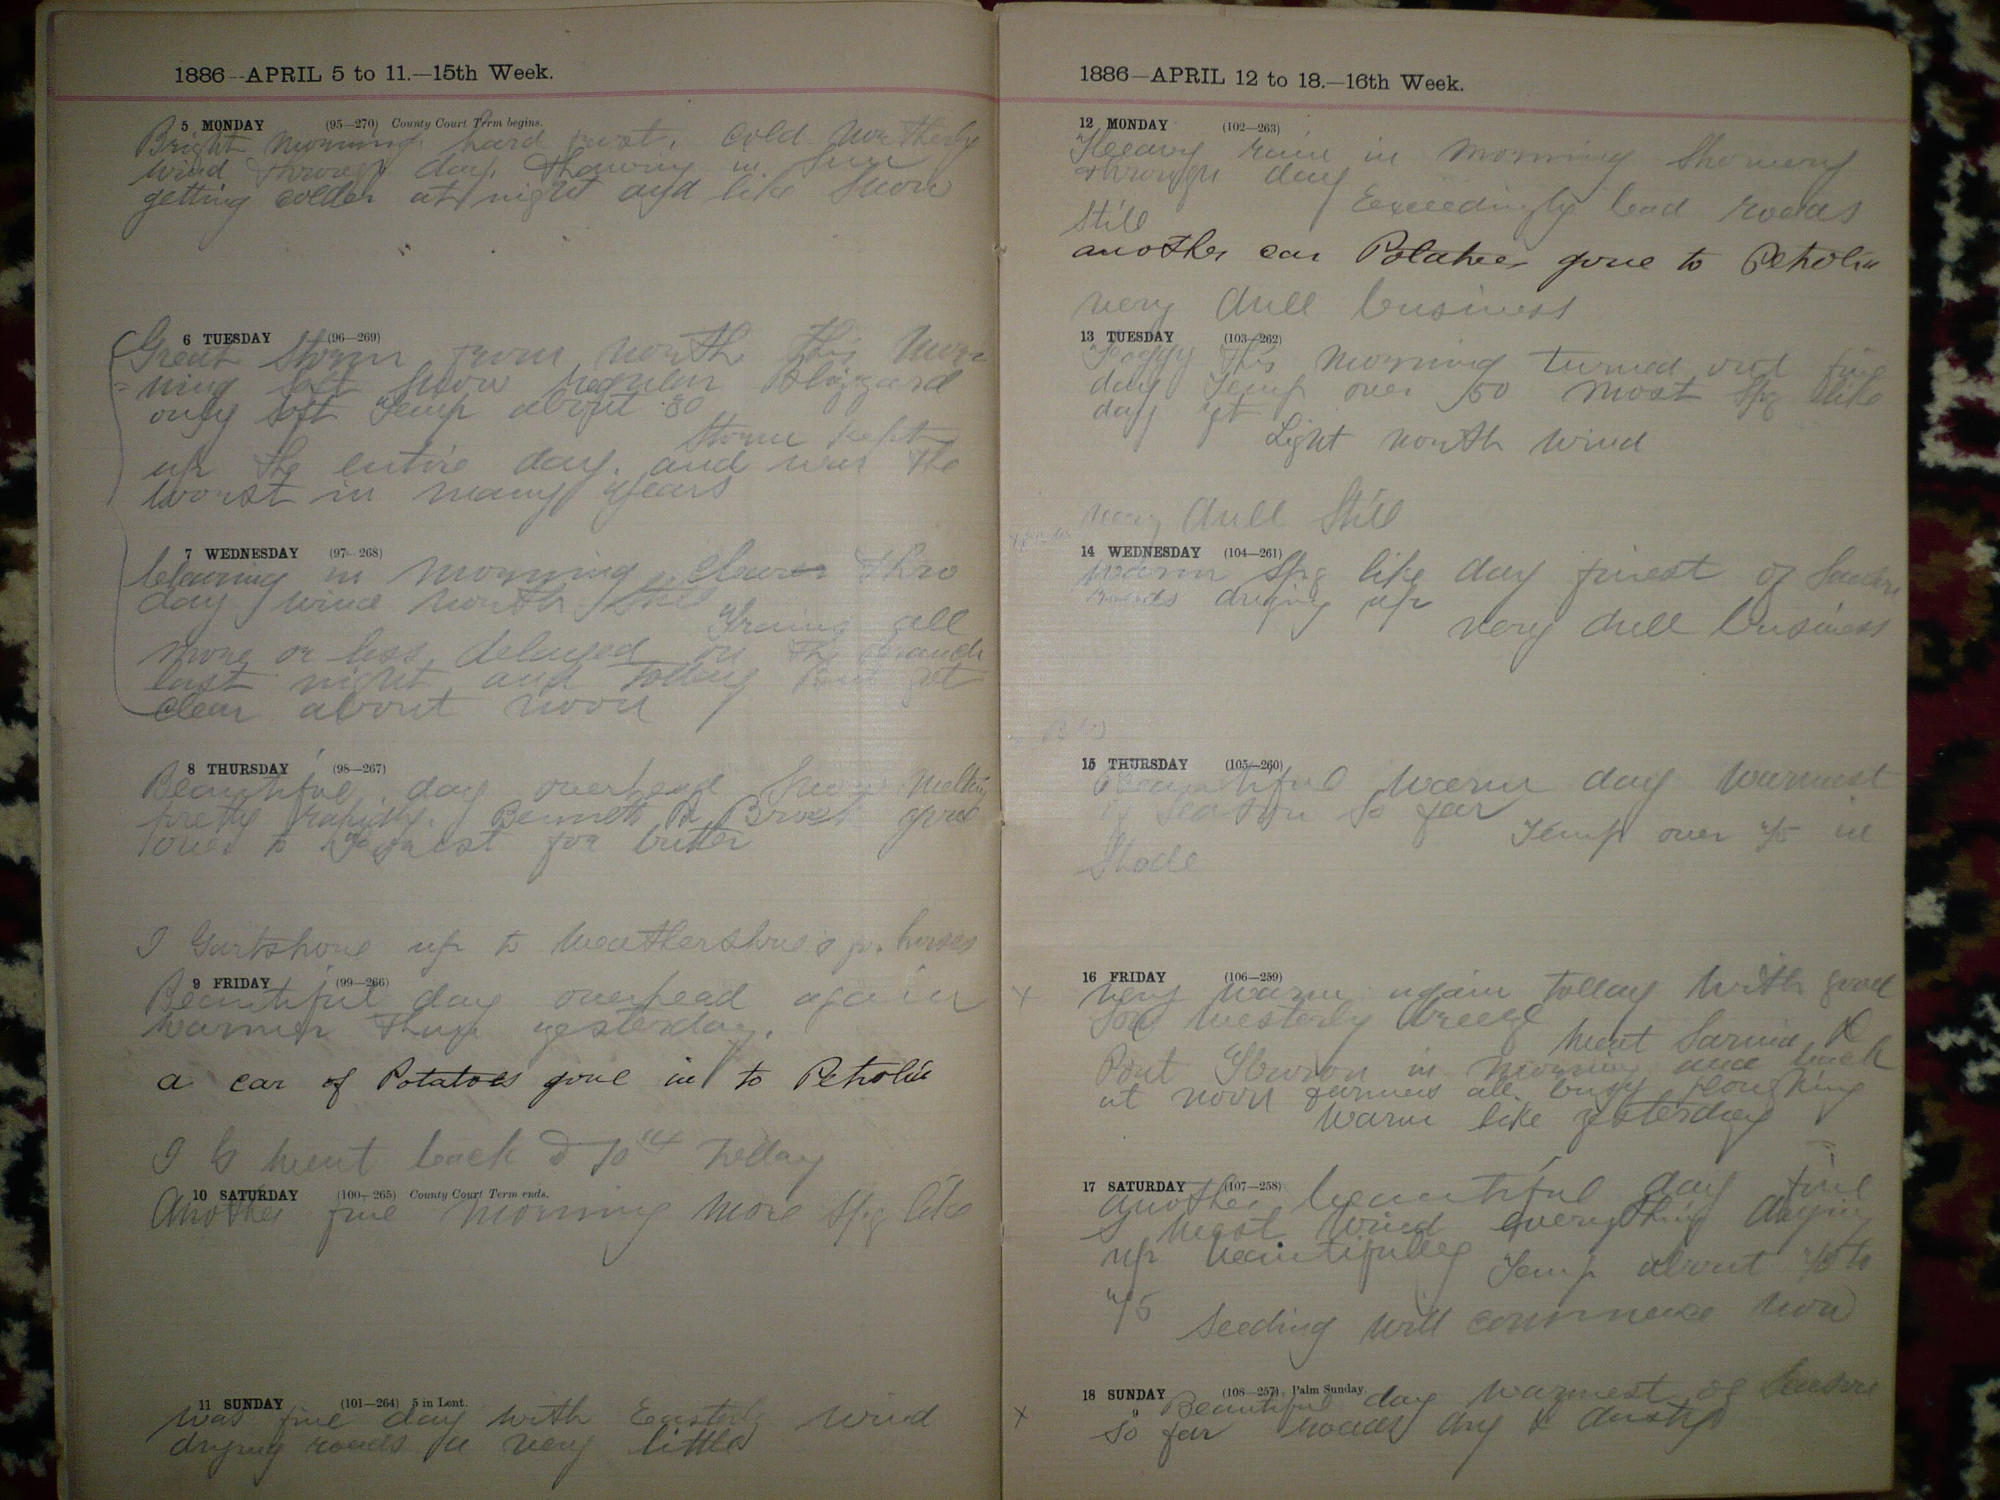 1886--APRIL 5 to 11.—15th Week.
5 MONDAY (95—270) County Court Term begins.
Bright morning hard frost. Cold Northerly
wind through day. Thawing in sun
getting colder at night and like snow
6 TUESDAY (96—269)
Great Storm from north this mor-
-ning snow regular Blizzard
only soft Temp about 30
Storm kept
up the entire day. and was the
worst in many years
7 WEDNESDAY (97—268)
in morning clear thro
day wind north still
Trains all
more or less delayed on the Branch
last night and today but get
clear about noon
8 THURSDAY (98—267)
Beautiful day overhead Snow melting
pretty rapidly. Bennett & gone
over to Forest for butter
I Gartshore up to horses
9 FRIDAY (99—266)
Beautiful day overhead again
warmer than yesterday.
a car of Potatoes gone in to Petrolia
I G went back 10th today
10 SATURDAY (100—265) County Court Term ends.
Another fine morning more Spg like
11 SUNDAY (101—264) 5 in Lent.
was fine day with Easterly wind
drying roads a very little
1886—APRIL 12 to 18.—16th Week.
12 MONDAY (102—263)
Heavy rain in morning Showery
through day Exceedingly bad roads
Still
another car Potatoes gone to Petrolia
very dull business
13 TUESDAY (103—262)
Foggy this morning turned out fine
day Temp over 50 most Spg like
day yet
Light north wind
very dull Still
14 WEDNESDAY (104—261)
Warm Spg like day finest of Season
Roads drying up
very dull business
15 THURSDAY (105—260)
Beautiful warm day warmest
of season so far
Temp over 75 in
Shade
16 FRIDAY (106—259)
x very warm again today with good
Westerly breeze
went Sarnia &
Port Huron in morning and back
at noon farmers all busy ploughing
warm like yesterday
17 SATURDAY (107—258)
another beautiful day fine
S West wind everything drying
up beautifully
Temp about 70 to
75
Seeding will commence now
18 SUNDAY (108—257) Palm Sunday.
x Beautiful day warmest of Season
so far roads dry & dusty